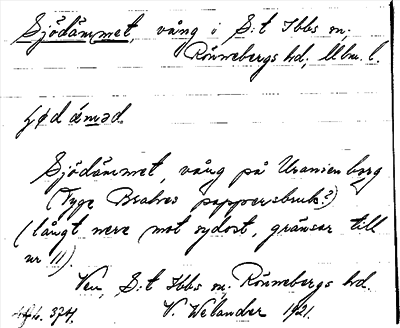 Sjödämmet, vång i S:t Ibbs sn;
Rönnebergs hd, Mlm. l.
Sjödämmet, vång på Uranienborg
(Tyge Brahes pappersbruk?)
(långt nere mot sydost, gränsar till
nr 11).
Ven, S:t Ibbs sn, Rönnebergs hd.
V. Welander 1921.